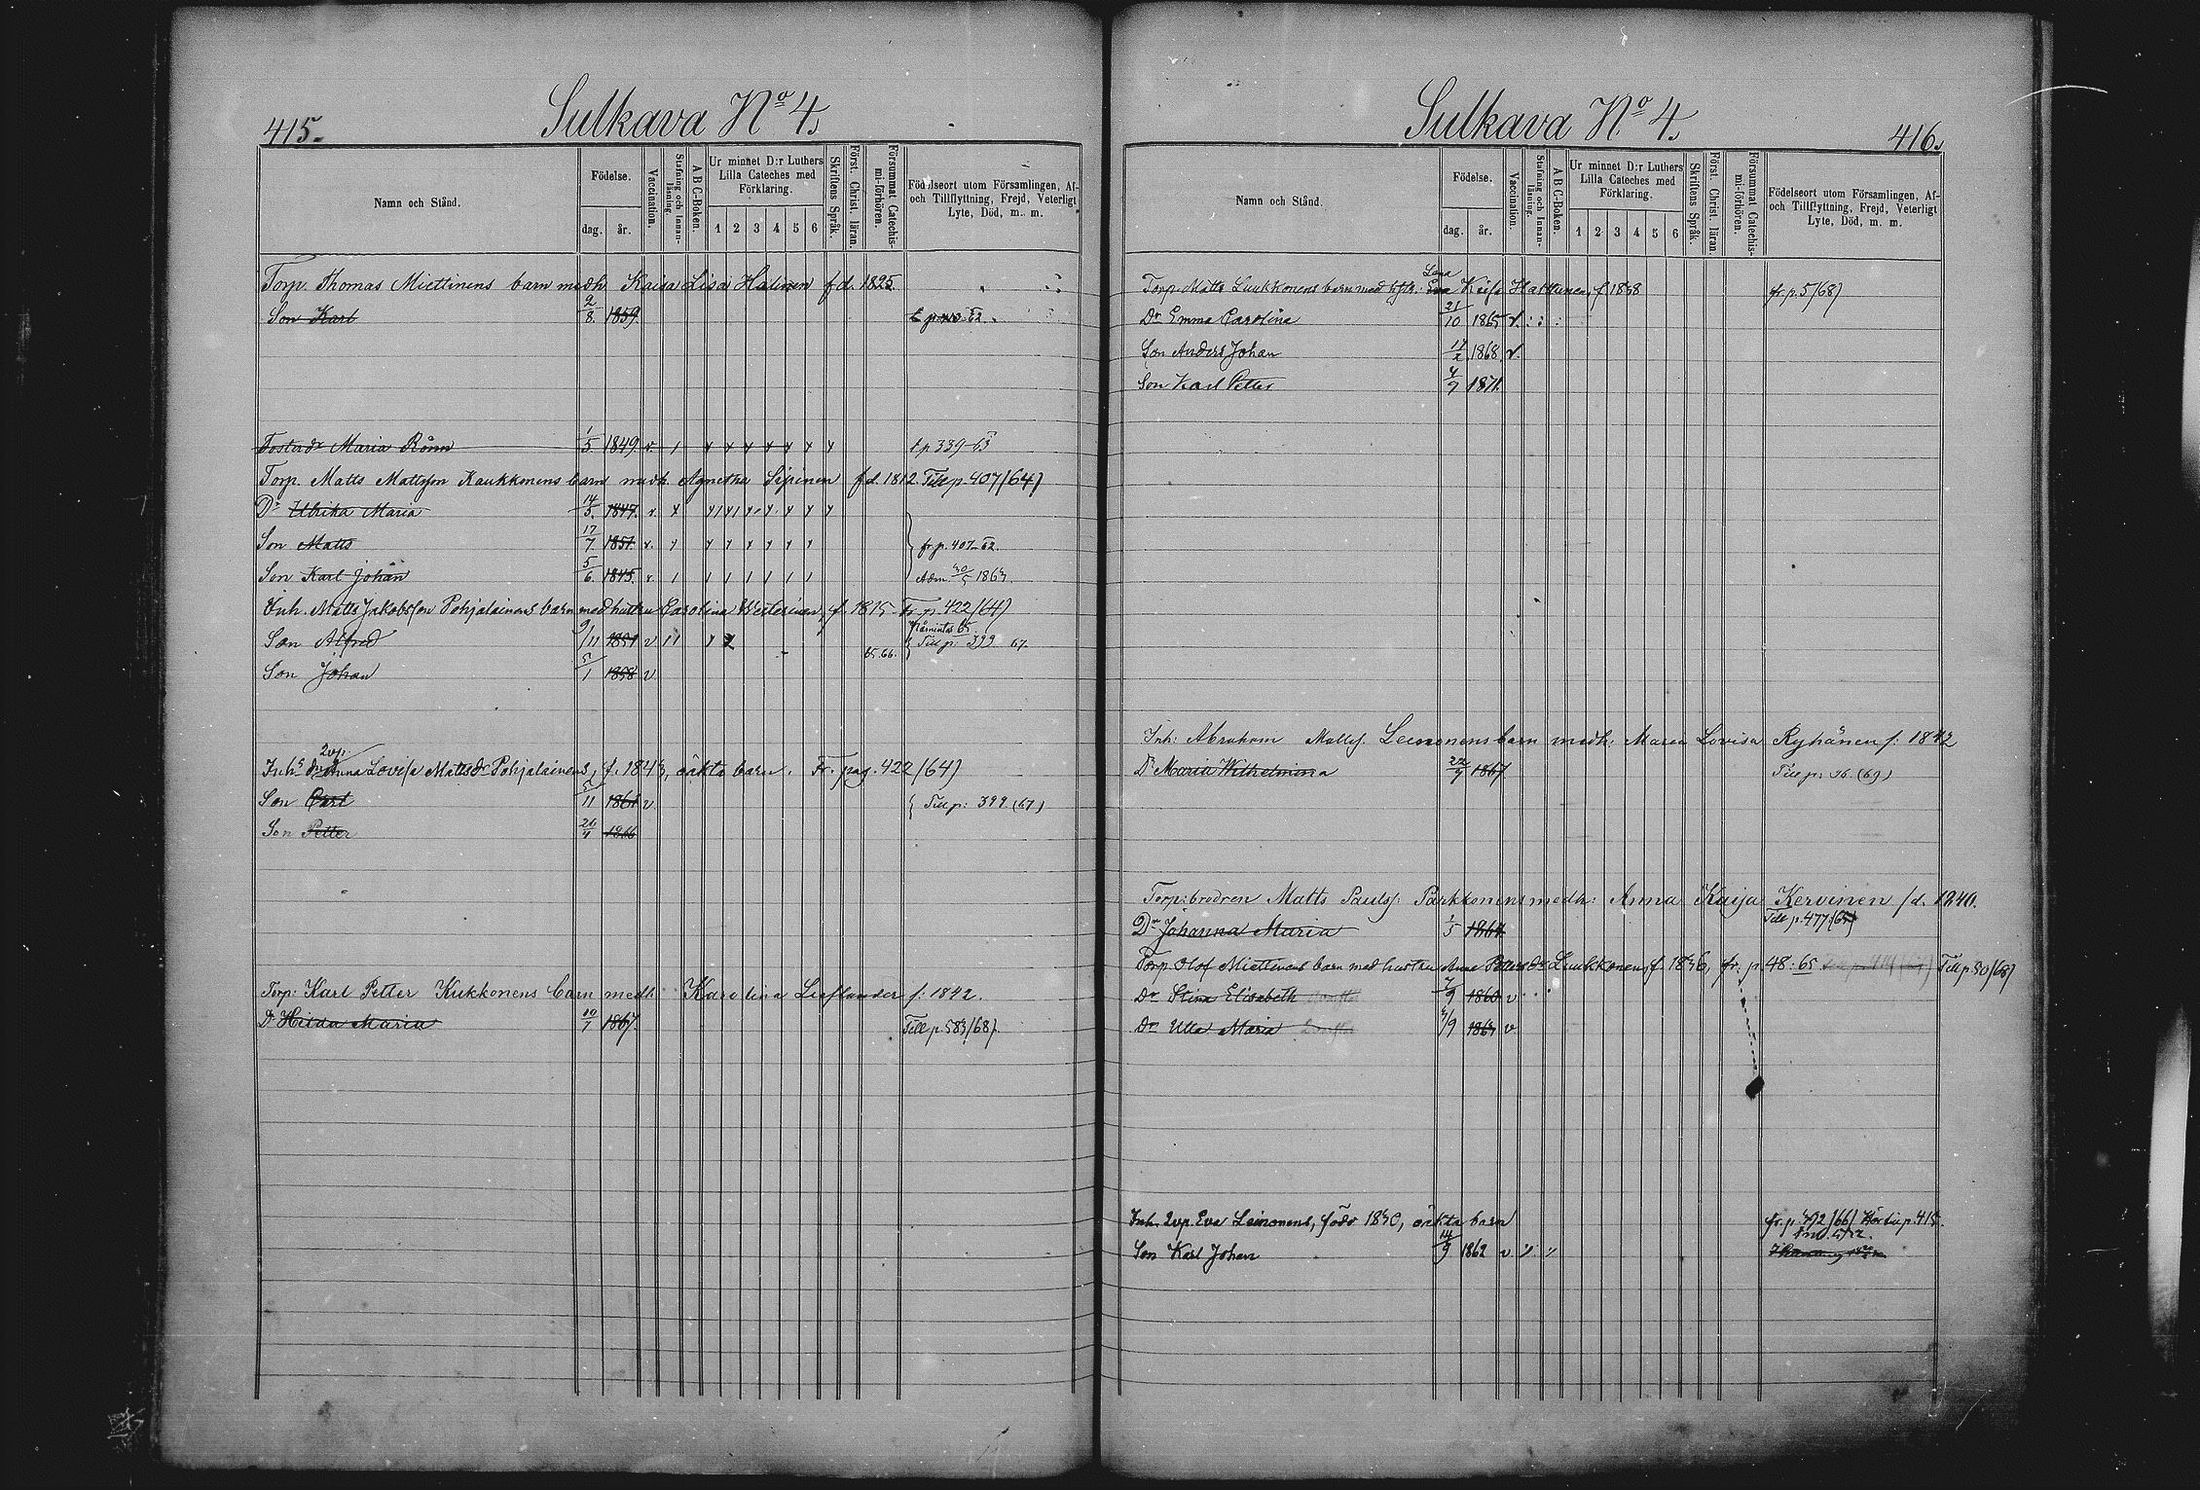 415.
Sulkava No 4.
Namn och Stånd.
Födelse.
dag.
år.
Vaccination.
Stafning och Innanläsning
A B C-Boken.
Ur minnet D:r Luthers
Lilla Cateches med
Förklaring.
1 2 3 4 5 6
Skriftens Språk.
Först. Christ. läran.
Försummat Catechismi-förhören.
Födelseort utom Församlingen, Af-
och Tillflyttning, Frejd, Veterligt
Lyte, Död, m. m.
Torp. Thomas Miettinens barn medh Kaisa Lisa Halinen f d. 1825
Son Karl 2/8 1859
Fosterdr Maria Rönn 1/5 1849 v. t p 339-63
Torp. Matts Mattsson Kaukkonens barn medh. Agnetha Sipinen f d. 1812 Till p. 407/64)
Dr Ulrika Maria 14/5 1847. v.
Son Matts 17/7 1851. v. fr p. 407-62.
Son Karl Johan 5/6 1845. v. Adm. 1864.
Inh. Matts Jakobsson Pohjalainens barn med hustru Carolina Westerinen, f. 1815 Fr. p. 422/64)
Son Alfred 9/11 1851 v 65.66. Till p: 399 67.
Son Johan 5/1 1858 v
2vp:
Inhs dr Anna Lovisa Mattsdr Pohjalainens, f. 1843, oäkta barn. Fr. pag. 422/64)
Son Carl 5/11 1861 v. Till p: 399 (67)
Son Petter 1866
Torp: Karl Petter Kukkonens barn medh: Karolina Lieflander f: 1842.
Dr Hilda Maria 10/7 1867. Till p. 583/68).
Sulkava No 4.
416.
Namn och Stånd.
Födelse.
dag.
år.
Vaccination.
Stafning och Innanläsning.
A B C-Boken.
Ur minnet D:r Luthers
Lilla Cateches med
Förklaring.
1 2 3 4 5 6
Skriftens Språk.
Först. Christ. läran
Försummat Catechismi-förhören.
Födelseort utom Församlingen, Af-
och Tillflyttning, Frejd, Veterligt
Lyte, Död, m. m.
Lena
Torp. Matts Luukkonens barn med hstr: Eva Kaisa Hattunen, f 1838 fr. p. 5/68)
Dr Emma Carolina 21/10 1865 v.
Son Anders Johan 17/2 1868 v.
Son Karl Petter 4/7 1871.
Inh: Abraham Mattss. Leinonens barn medh: Maria Lovisa Ryhänen f: 1842
Dr Maria Wilhelmina 22/9 1867 Till p: 36. (69)
Torp:brodren Matts Paulss. Parkkonens medh: Anna Kaija Kervinen f d. 1840.
Dr Johanna Maria 1/5 1864 Till p. 477 (65)
Torp Olof Miettinens barn med hustru Anna Pettersdr Luukkonen, f. 1836, fr. p. 48. 65 Till p. 50/68)
Dr Stina Elisabeth 7/9 1860 v
Dr Ulla Maria 3/9 1864 v
Inh. 2vp. Eva Leinonens, född 1830, oäkta barn fr. p 492/66) Hör till p. 415.
Son Karl Johan 14/9 1862 v